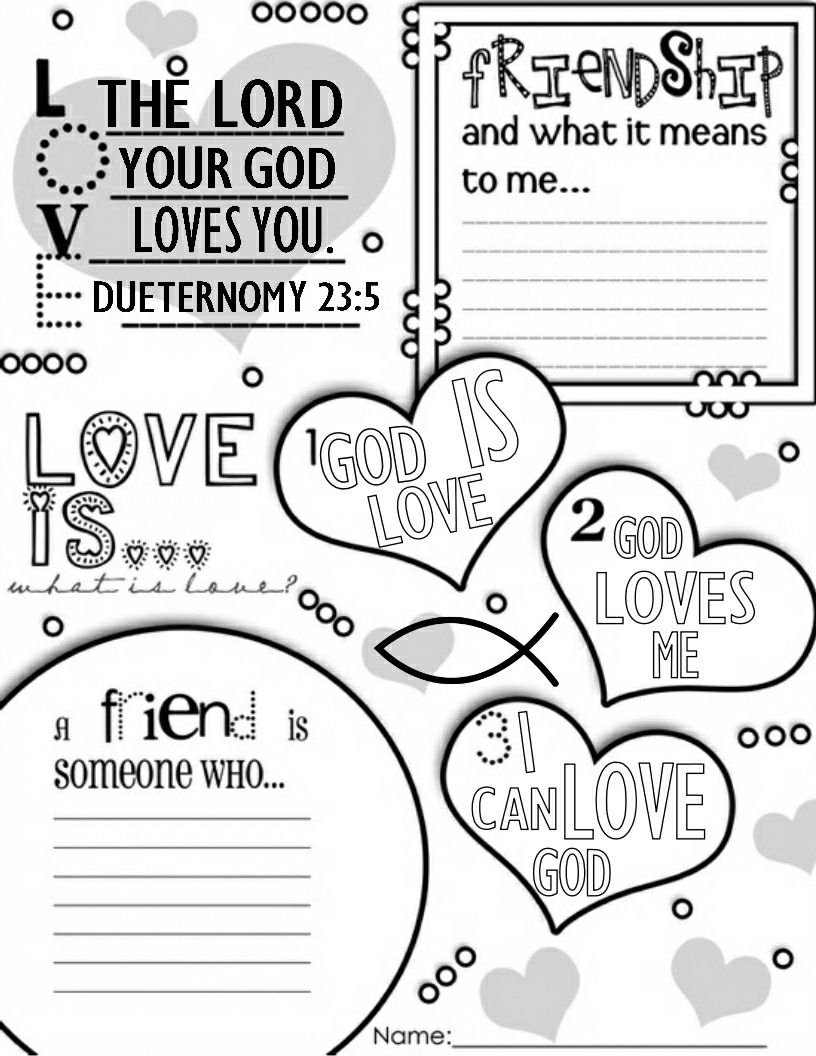 L THE LORD
O YOUR GOD
V LOVES YOU.
E DUETERNOMY 23:5
fRIeNDShIP
and what it means
to me...
LOVE
iS...
what is love?
1 GOD IS
LOVE
2 GOD
LOVES
ME
3 I
CAN LOVE
GOD
A friend is
someone WHO...
Name: